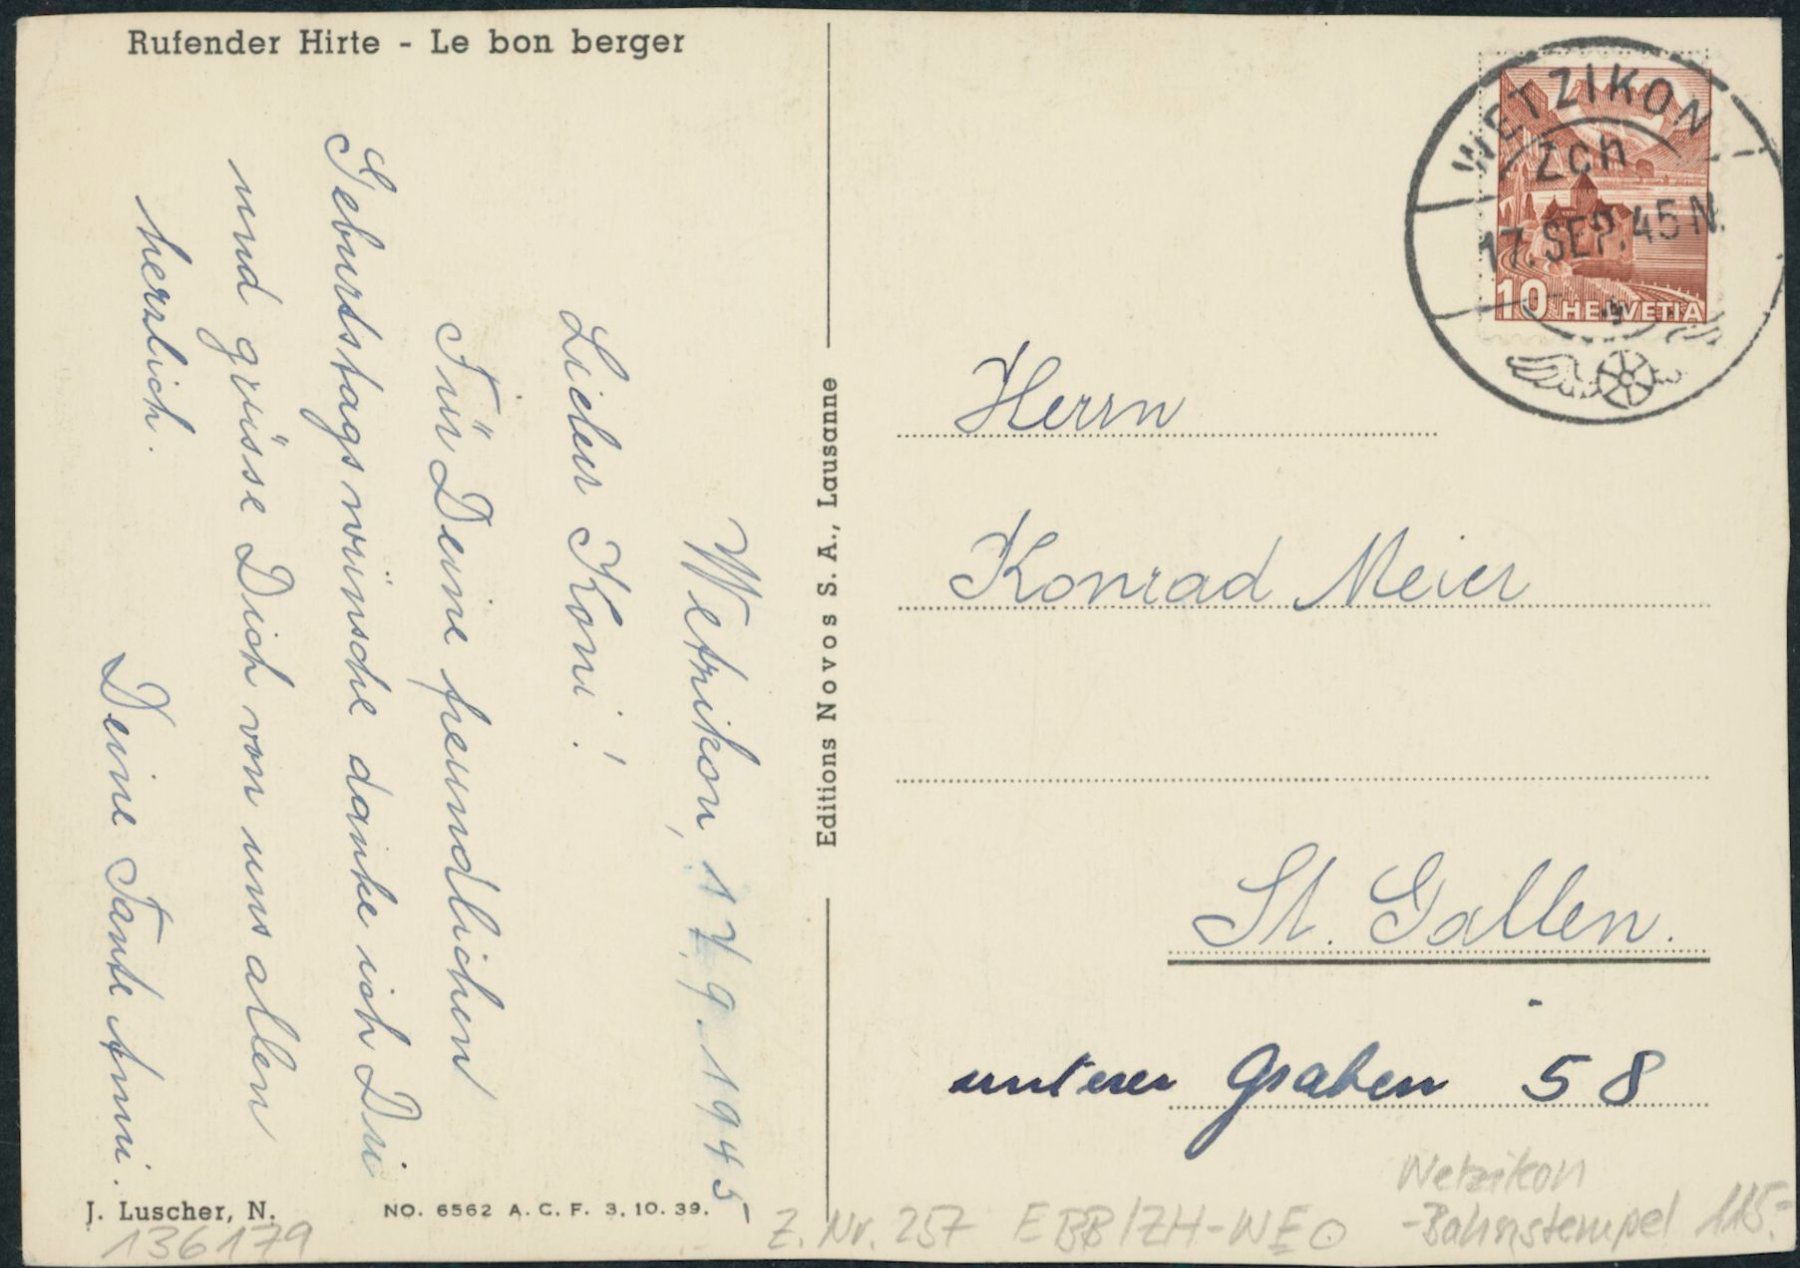 Rufender Hirte - Le bon berger
Wetzikon, 17.9.1945
Lieber Koni!
Für Deine freundlichen
Geburtstagswünsche danke ich Dir
und grüsse Dich von uns allen
herzlich.
Deine Tante Anni.
J. Luscher, N.
NO. 6562 A. C. F. 3. 10. 39.
136179
Editions Novos S. A., Lausanne
WETZIKON
Zch
17. SEP. 45 N.
10 HELVETIA
Herrn
Konrad Meier
St. Gallen.
unterer Graben 58
Wetzikon
Z. Nr. 257 EBB/ZH-WEO -Bahnstempel 115.-